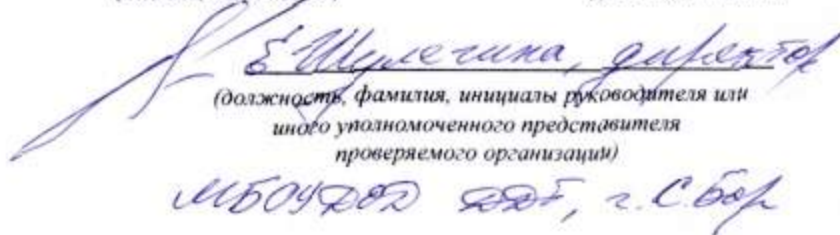 Е Шулегина, директор
(должность, фамилия, инициалы руководителя или
иного уполномоченного представителя
проверяемого организации)
МБОУДОД ДДТ, г. С. Бор